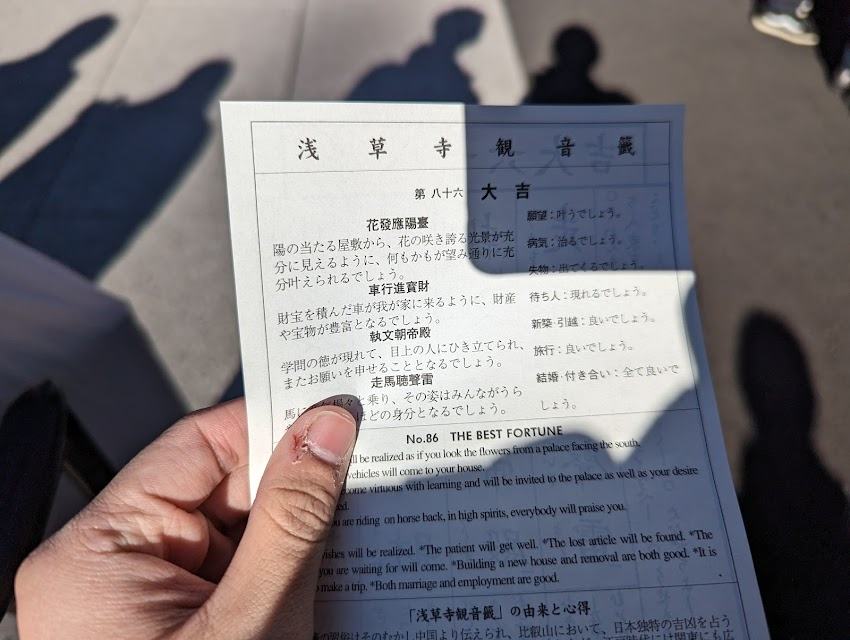 浅草寺観音籤
第八十六 大吉
花發應陽臺
陽の当たる屋敷から、花の咲き誇る光景が充
分に見えるように、何もかもが望み通りに充
分叶えられるでしょう。
車行進寳財
財宝を積んだ車が我が家に来るように、財産
や宝物が豊富となるでしょう。
執文朝帝殿
学問の徳が現れて、目上の人にひき立てられ、
またお願いを申せることとなるでしょう。
走馬聴聲雷
馬に
と乗り、その姿はみんながうら
ほどの身分となるでしょう。
願望：叶うでしょう。
病気：治るでしょう。
失物：出てくるでしょう。
待ち人：現れるでしょう。
新築・引越：良いでしょう。
旅行：良いでしょう。
結婚・付き合い：全て良いで
しょう。
No.86 THE BEST FORTUNE
be realized as if you look the flowers from a palace facing the south,
vehicles will come to your house.
virtuous with learning and will be invited to the palace as well as your desire
are riding on horse back, in high spirits, everybody will praise you.
will be realized. *The patient will get well. *The lost article will be found. *The
you are waiting for will come. *Building a new house and removal are both good. *It is
make a trip. *Both marriage and employment are good.
「浅草寺観音籤」の由来と心得
はそのむかし中国より伝えられ、比叡山において、日本独特の吉凶を占う